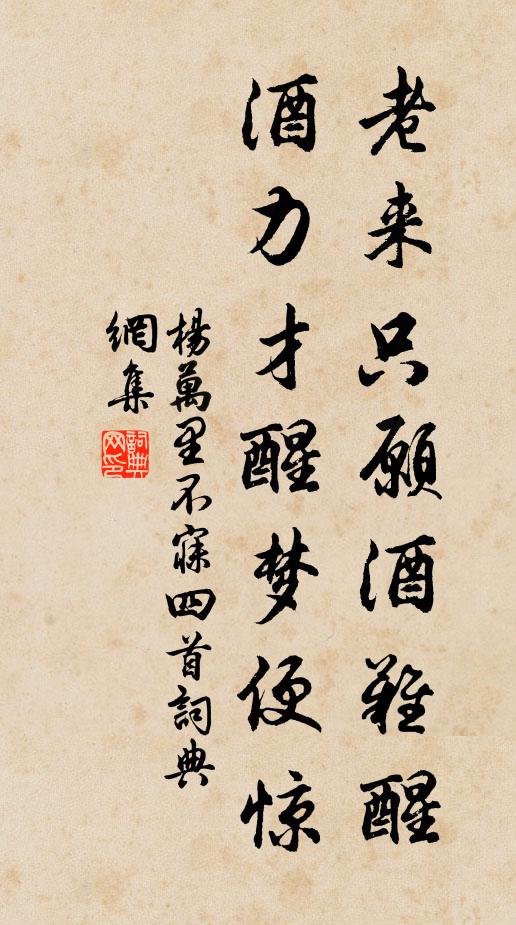 老来只愿酒难醒
酒力才醒梦便惊
楊萬里不寐四首詞典
網集
詞典网印